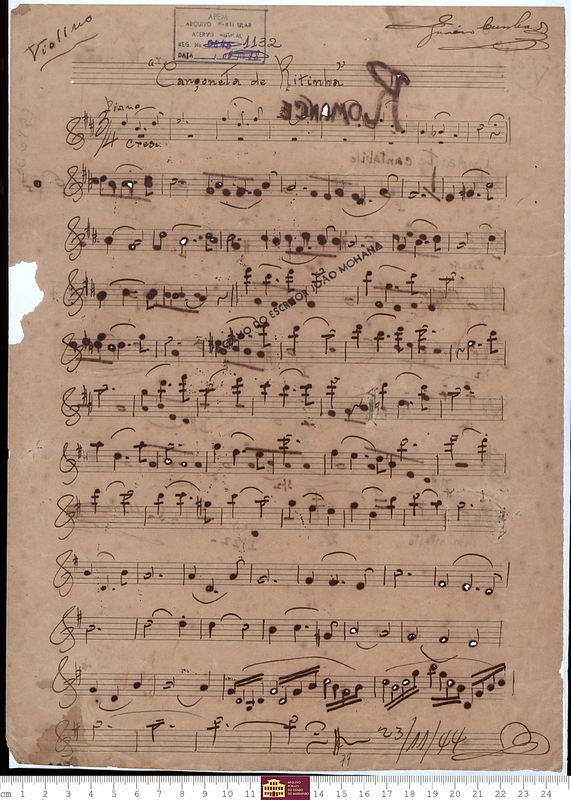 Violino
APEM
ARQUIVO PARTICULAR
ACERVO MUSICAL
REG. No 1132
DATA
"Cançoneta de Ritinha"
ROMANCE
Piano
3/4
Cresc.
cantabile
DO ESCRITOR JOÃO MOHANA
23/11/44
77
cm 1 2 3 4 5 6 7 8 9 10 11 14 15 16 17 18 19 20 21 22 23 24
ARQUIVO
PÚBLICO
DO ESTADO
DO MARANHÃO